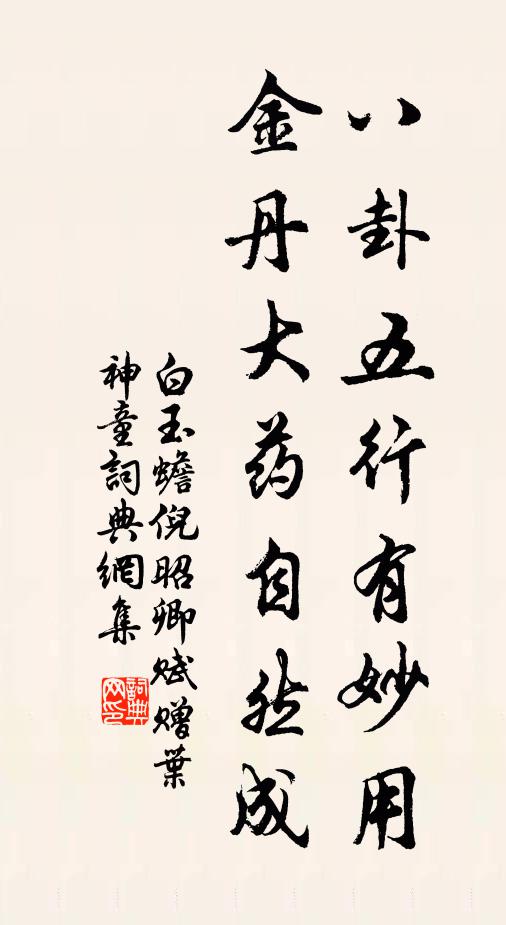 八卦五行有妙用
金丹大药自然成
白玉蟾倪昭卿赋赠葉
神童詞典網集
詞典网印